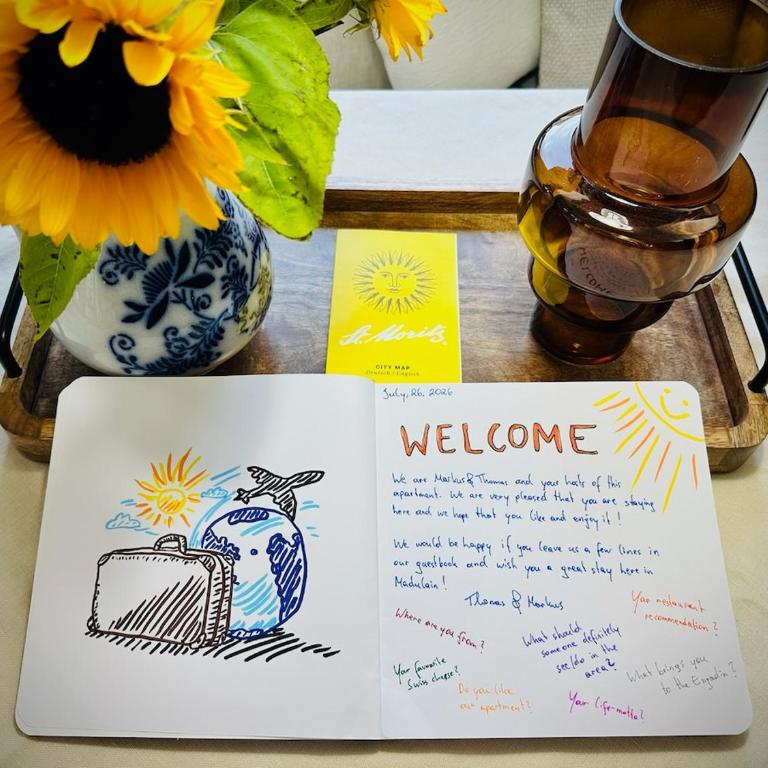 St. Moritz.
CITY MAP
Deutsch / English
July, 26. 2026
WELCOME
We are Markus & Thomas and your hosts of this
apartment. We are very pleased that you are staying
here and we hope that you like and enjoy it!
We would be happy if you leave us a few lines in
our guestbook and wish you a great stay here in
Madulain!
Thomas & Markus
Your restaurant
recommendation?
Where are you from?
What should
someone definitely
see/do in the
area?
What brings you
to the Engadin?
Your favourite
Swiss cheese?
Do you like
our apartment?
Your life-motto?